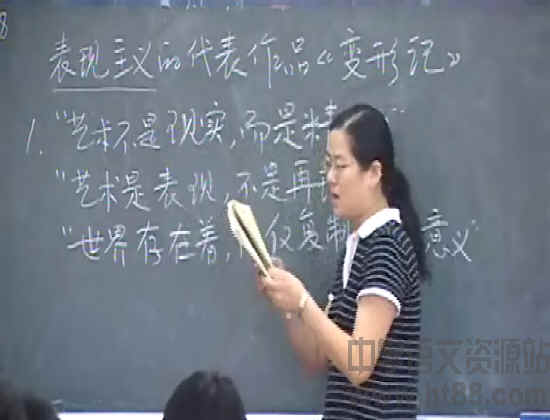 8
表现主义的代表作品《变形记》
1. "艺术不是现实,而是精
"艺术是表现,不是再
"世界存在着,仅复制 意义"
中学语文资源站
www.ht88.com